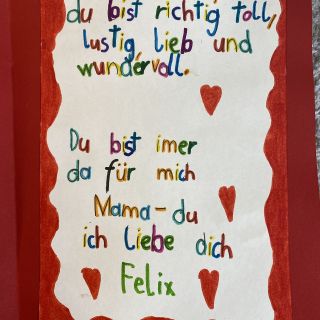 du bist richtig toll,
lustig lieb und
wundervoll.
Du bist imer
da für mich
Mama-du
ich Liebe dich
Felix